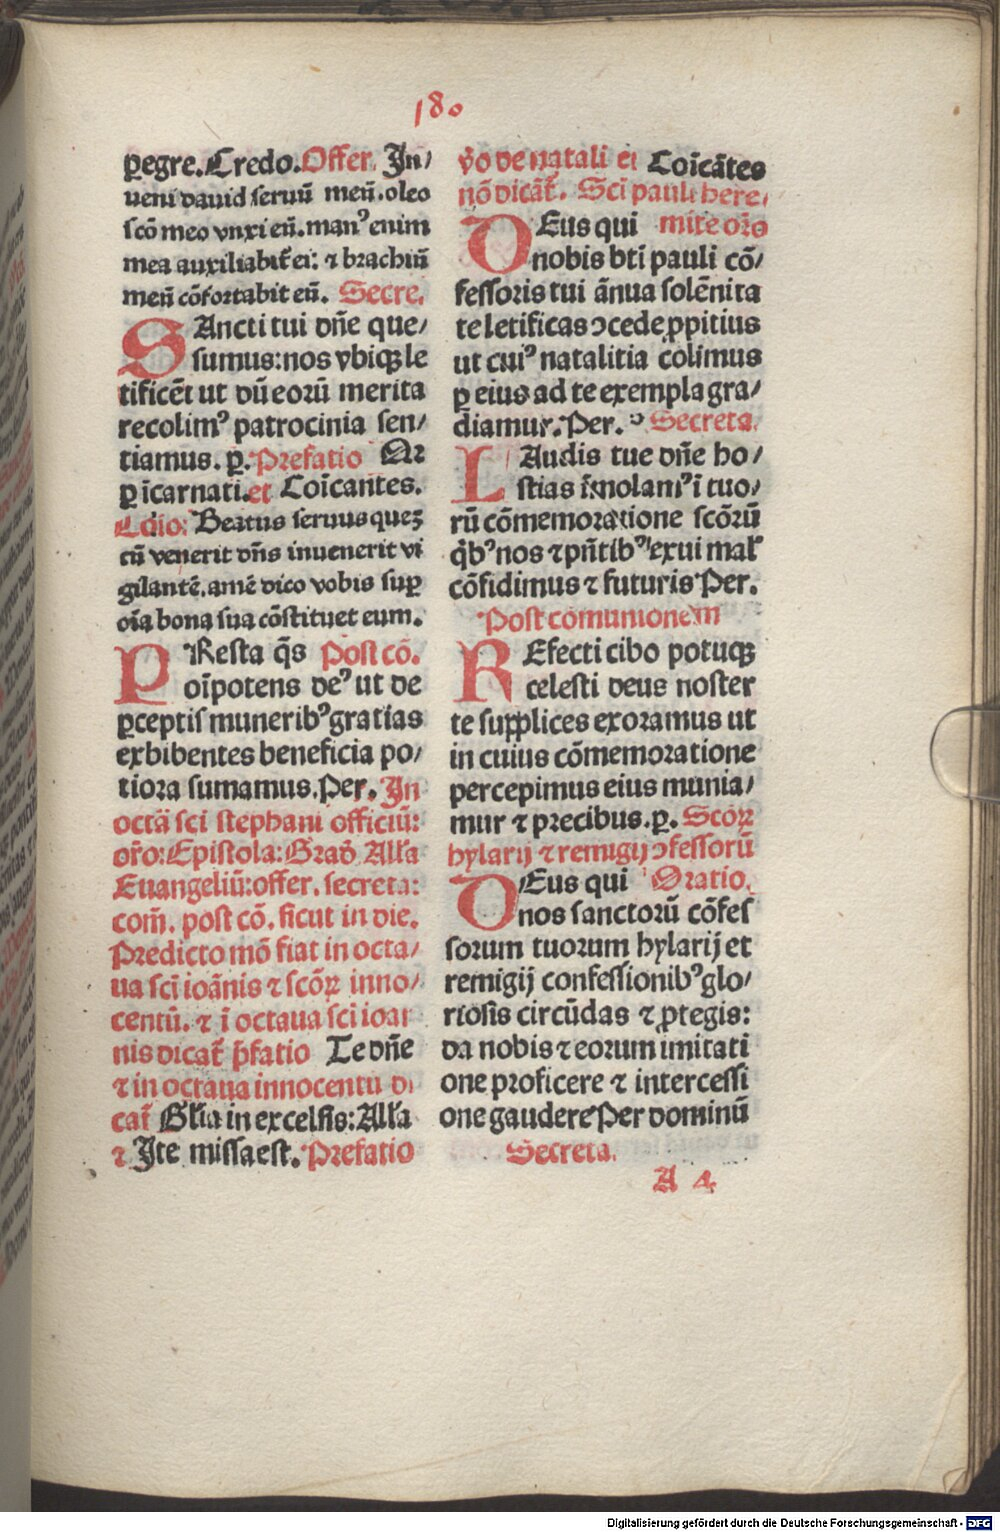 180
ꝑegre. Credo. Offer. In/
ueni dauid seruū meū. oleo
scō meo vnxi eū. manꝰ enim
mea auxiliabit̄ ei: ⁊ brachiū
meū cōfortabit eū. Secre.
SAncti tui dn̄e que/
sumus: nos vbiqꝫ le
tificēt ut dū eorū merita
recolimꝰ patrocinia sen/
tiamus. ꝑ. Prefatio Qꝛ
ꝑ īcarnati. et Coīcantes.
Cōio: Beatus seruus queꝫ
cū venerit dn̄s inuenerit vi
gilantē. amē dico vobis suꝑ
oīa bona sua cōstituet eum.
PResta q̄s Post cō.
oīpotens deꝰ ut de
ꝑceptis muneribꝰ gratias
exhibentes beneficia po/
tiora sumamus. Per. In
octā sci stephani officiū:
or̄o: Epistola: Grad̄ Alla
Euangeliū: offer. secreta:
com̄. post cō. sicut in die.
Predicto mō fiat in octa/
ua sci ioānis ⁊ scōꝝ inno/
centū. ⁊ ī octaua sci ioan
nis dicat̄ p̄fatio Te dn̄e
⁊ in octaua innocentū di
cat̄ Glia in excelsis: Alla
⁊ Ite missa est. Prefatio
v̄o de natali et Coīcātes
nō dicāt̄. Sci pauli here/
DEus qui mite or̄o
nobis bti pauli cō/
fessoris tui ānua solēnita
te letificas ↄcede ꝓpitius
ut cuiꝰ natalitia colimus
ꝑ eius ad te exempla gra/
diamur. Per. Secreta.
LAudis tue dn̄e ho/
stias īmolamꝰ ī tuo/
rū cōmemoratione scōrū
q̄bꝰ nos ⁊ pn̄tibꝰ exui mal̄
cōfidimus ⁊ futuris Per.
Post comunionem
REfecti cibo potuqꝫ
celesti deus noster
te supplices exoramus ut
in cuius cōmemoratione
percepimus eius munia/
mur ⁊ precibus. ꝑ. Scoꝝ
hylarij ⁊ remigij ↄfessorū
DEus qui Oratio.
nos sanctorū cōfes
sorum tuorum hylarij et
remigij confessionibꝰ glo/
riosis circūdas ⁊ ꝓtegis:
da nobis ⁊ eorum imitati
one proficere ⁊ intercessi
one gaudere Per dominū
Secreta.
A 4
Digitalisierung gefördert durch die Deutsche Forschungsgemeinschaft - DFG